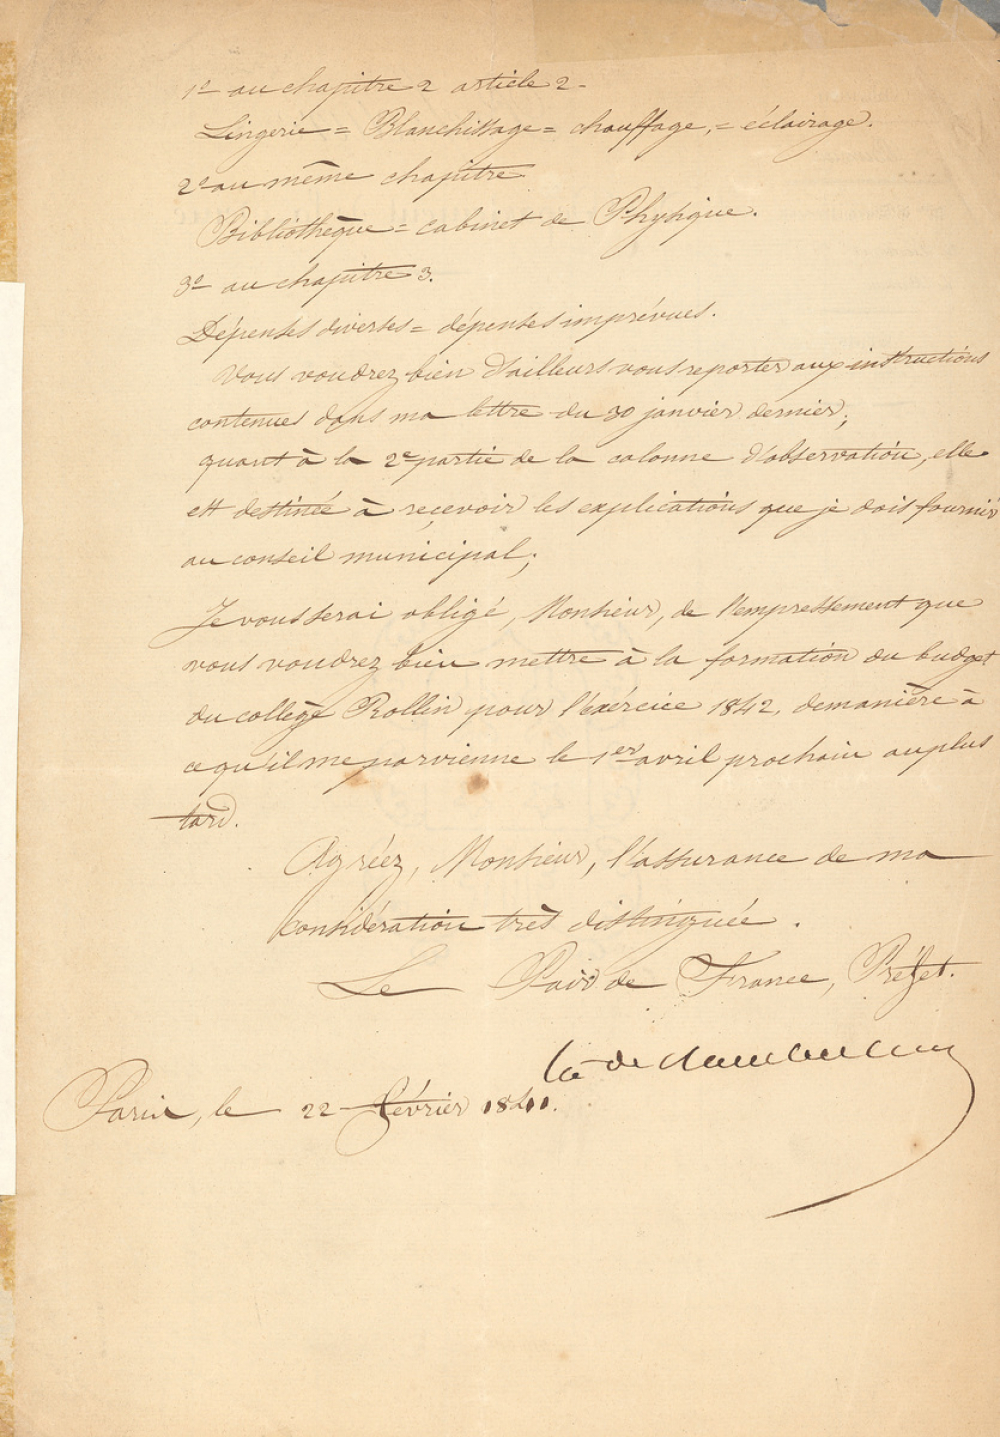 1º au chapitre 2 article 2.
Lingerie = Blanchissage = chauffage, = éclairage.
2º au même chapitre
Bibliothèque = cabinet de Physique.
3º au chapitre 3.
Dépenses diverses = dépenses imprévues.
Vous voudrez bien d'ailleurs vous reporter aux instructions
contenues dans ma lettre du 30 janvier dernier;
quant à la 2e partie de la colonne d'observation, elle
est destinée à recevoir les explications que je dois fournir
au conseil municipal;
Je vous serai obligé, Monsieur, de l'empressement que
vous voudrez bien mettre à la formation du budget
du collège Rollin pour l'éxércice 1842, de manière à
ce qu'il me parvienne le 1er avril prochain au plus
tard.
Agréez, Monsieur, l'assurance de ma
considération très distinguée.
Le Pair de France, Préfet.
Cte de Rambuteau
Paris, le 22 février 1841.